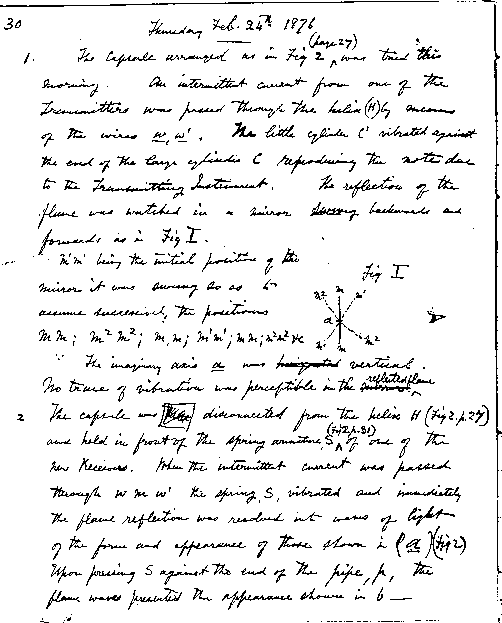 30
Thursday Feb. 24th 1876
1. The capsule arranged as in Fig 2 (page 27) was tried this
morning. An intermittent current from one of the
Transmitters was passed through the helix (H) by means
of the wires w, w'. The little cylinder C' vibrated against
the end of the large cylinder C reproducing the note due
to the Transmitting Instrument. The reflection of the
flame was watched in a mirror swung backwards and
forwards as in Fig I.
m'm' being the initial position of the
mirror it was swung so as to
assume successively the positions
mm; m²m²; mm; m'm'; mm; m²m² &c
Fig I
m² m m'
a
m' m m²
The imaginary axis a was vertical.
No trace of vibration was perceptible in the reflected flame
2 The capsule was disconnected from the helix H (Fig 2. p. 27)
and held in front of the spring armature, S, (Fig 2. p. 31) of one of the
new Receivers. When the intermittent current was passed
through w m w' the spring, S, vibrated and immediately
the flame reflection was resolved into waves of light
of the form and appearance of those shown in (a) (Fig 2)
Upon pressing S against the end of the pipe, p, the
flame waves presented the appearance shown in b —